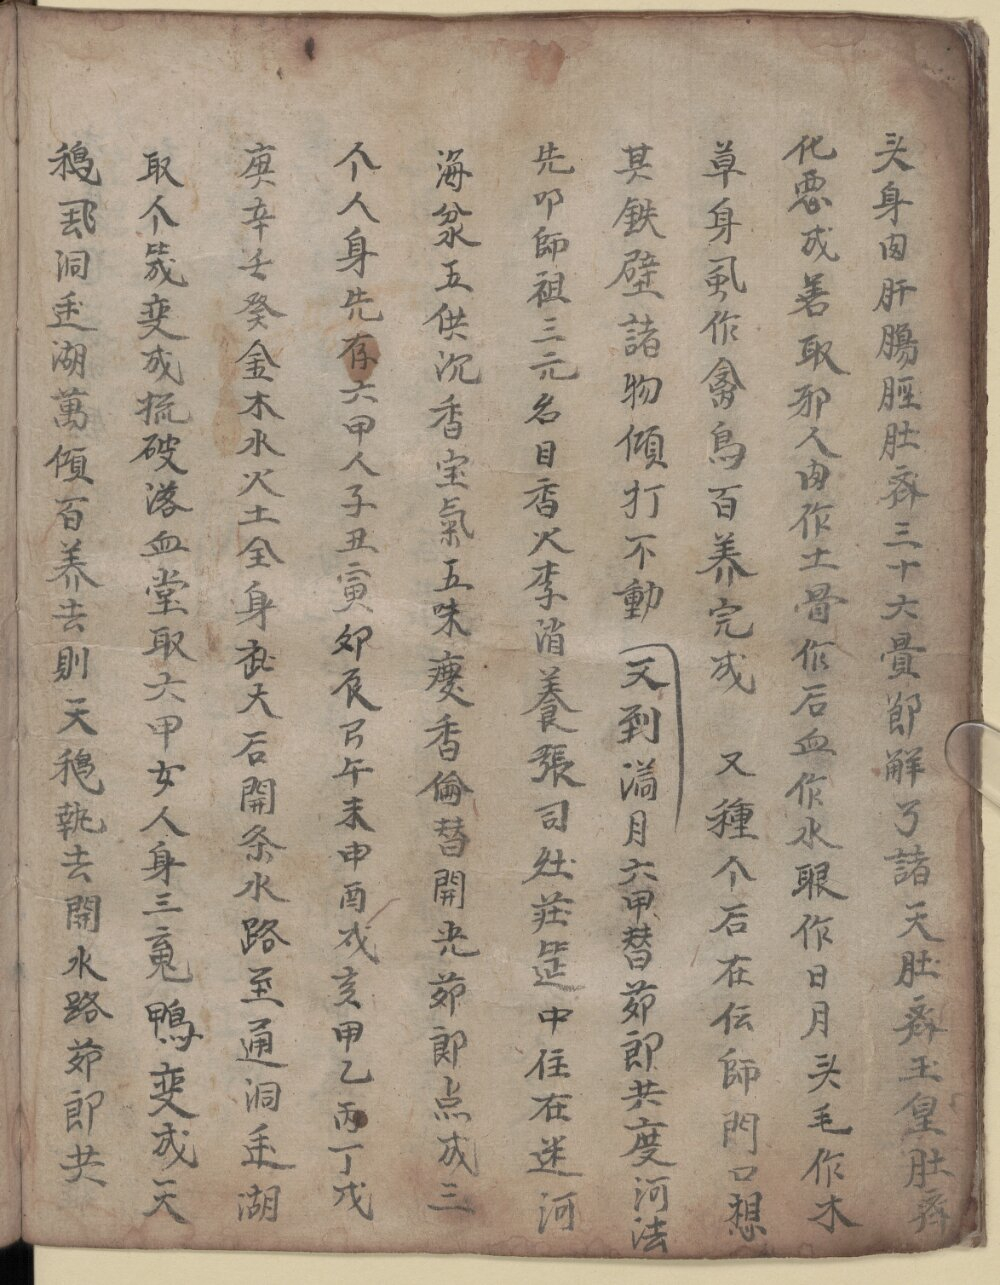 头身肉肝腸脛肚齐三十六骨節解了諸天肚齐玉皇肚齐
化悪成善取邪人肉作土骨作石血作水眼作日月头毛作木
草身虱作禽鳥百养完成 又種个石在伝師門口想
其铁壁諸物傾打不動 又到滿月六甲替茆郎共度河法
先叩師祖三元名目香火李消養張司灶莊筵中住在迷河
海 五供沉香宝氣五味 香倫替開光茆郎点成三
个人身先存六甲人子丑寅卯辰巳午未申酉戍亥甲乙丙丁戊
庚辛壬癸金木水火土全身 大石開条水路至通洞 湖
取个 变成 破落血堂取六甲女人身三鬼鴨变成天
 洞 湖萬傾百养去則天 執去開水路茆郎共